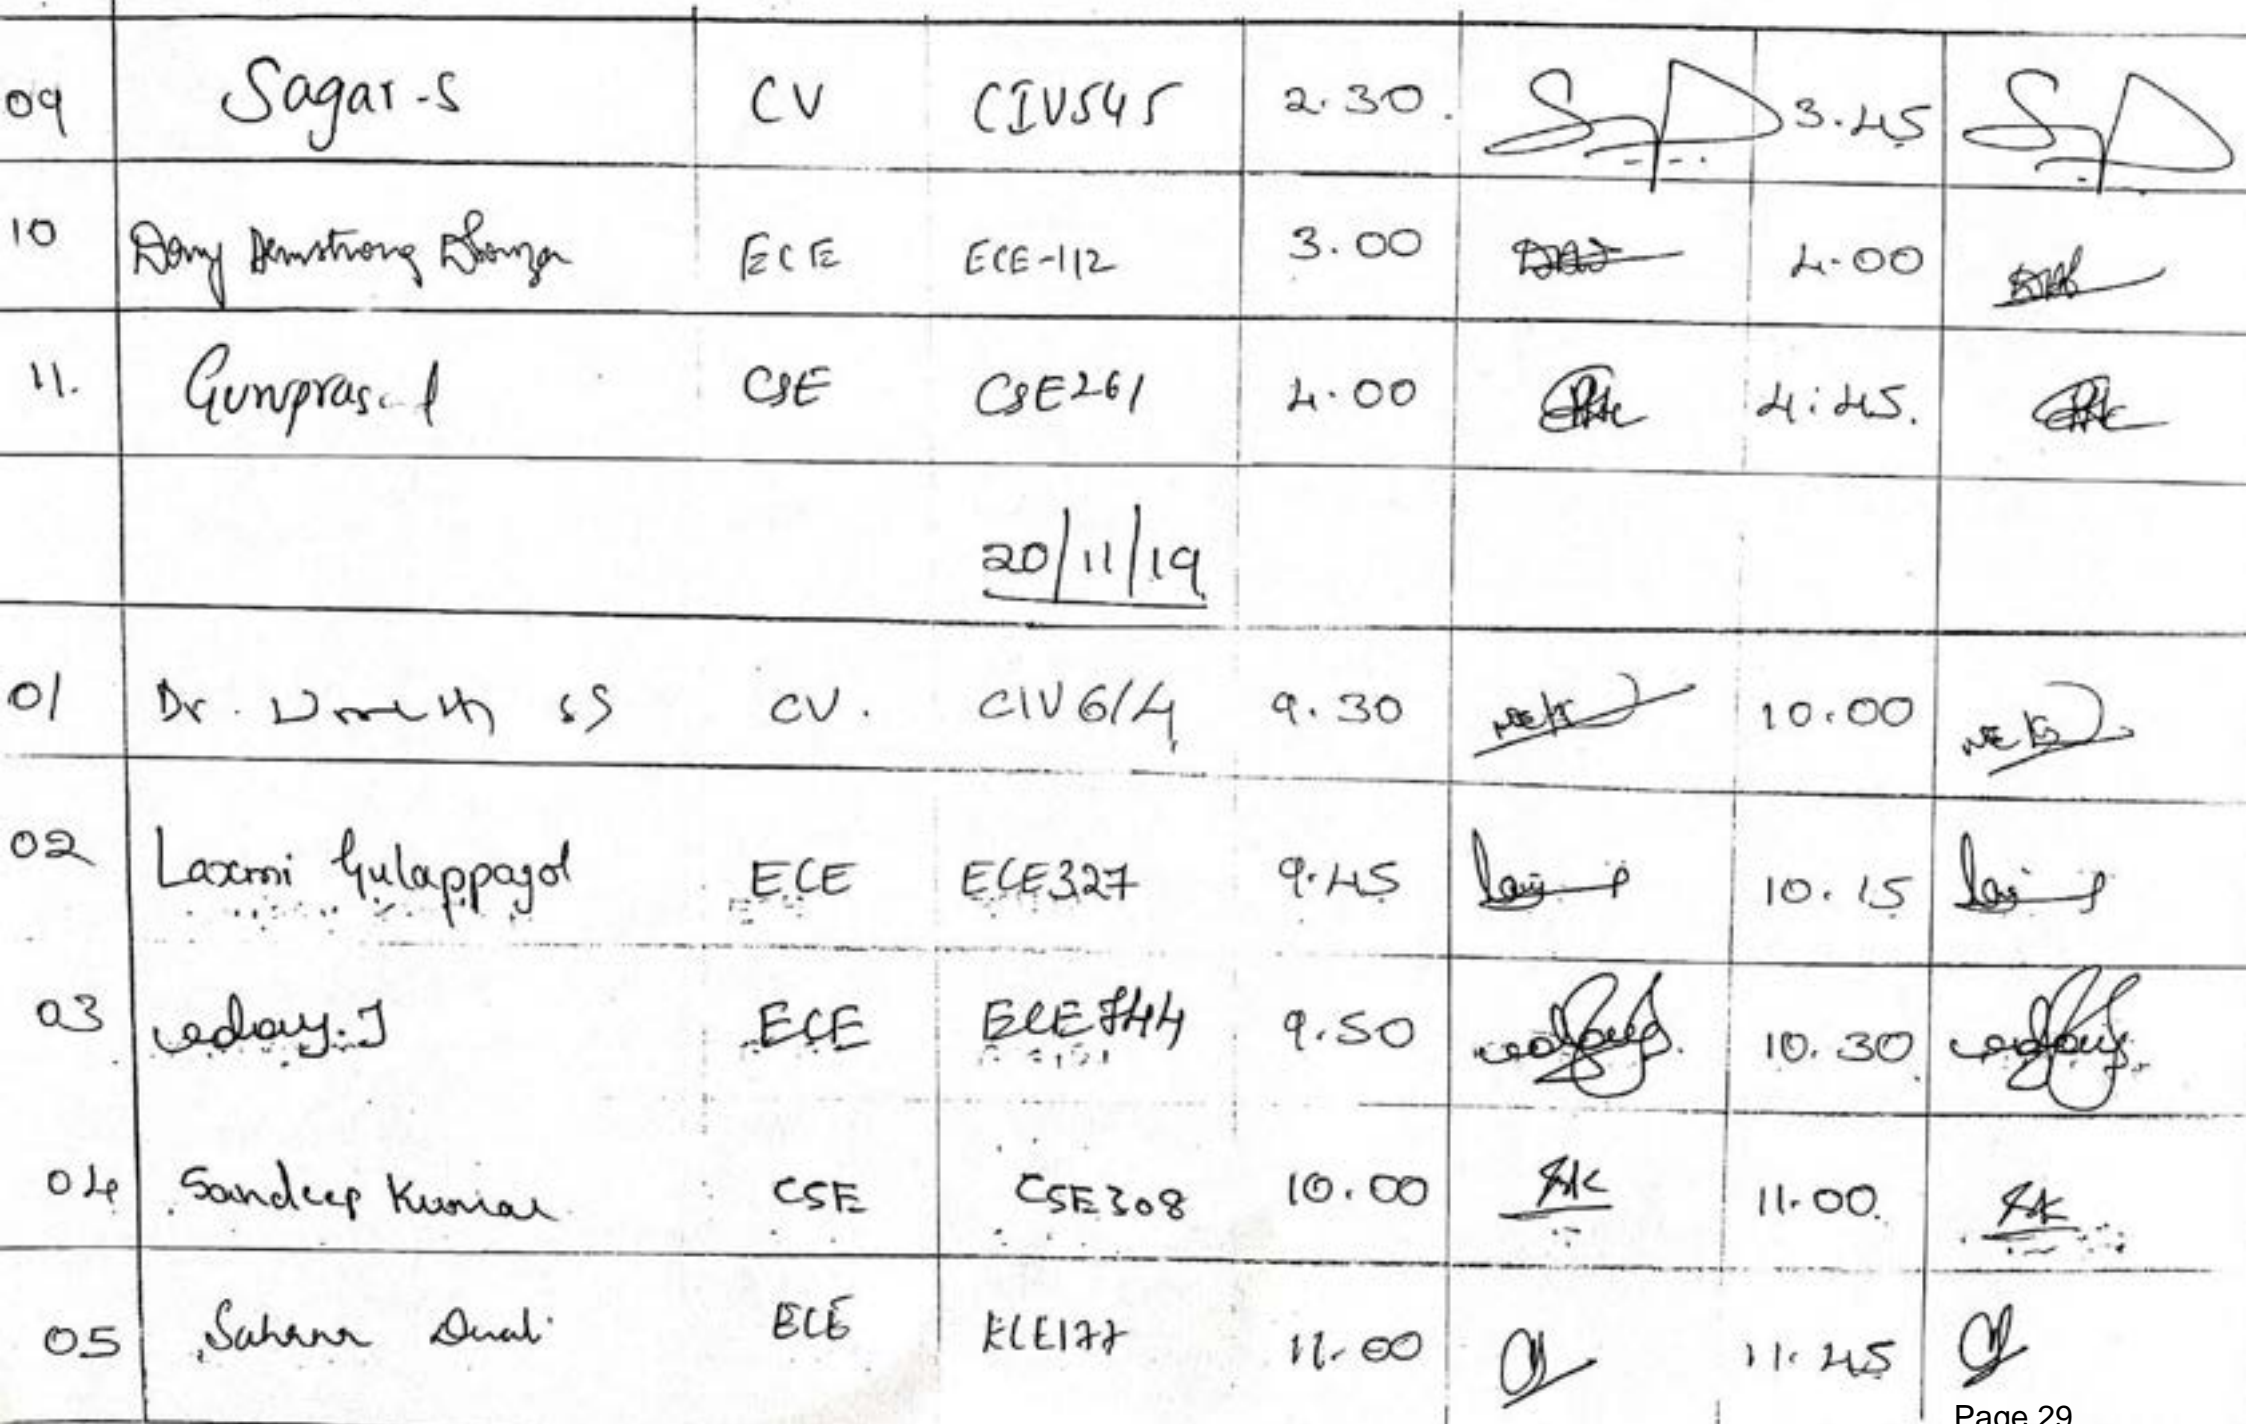 09 Sagar-S CV CIV545 2.30. 3.45
10 Dony Armstrong Dsouza ECE ECE-112 3.00 4.00
11. Guruprasad CSE CSE261 4.00 4:45.
20/11/19
01 Dr. SS CV. CIV614 9.30 10.00
02 Laxmi Gulappagol ECE ECE327 9.45 10.15
03 uday.J ECE ECE744 9.50 10.30
04 Sandeep Kumar CSE CSE308 10.00 SK 11.00 SK
05 Sahana ECE ECE177 11.00 11.45
Page 29